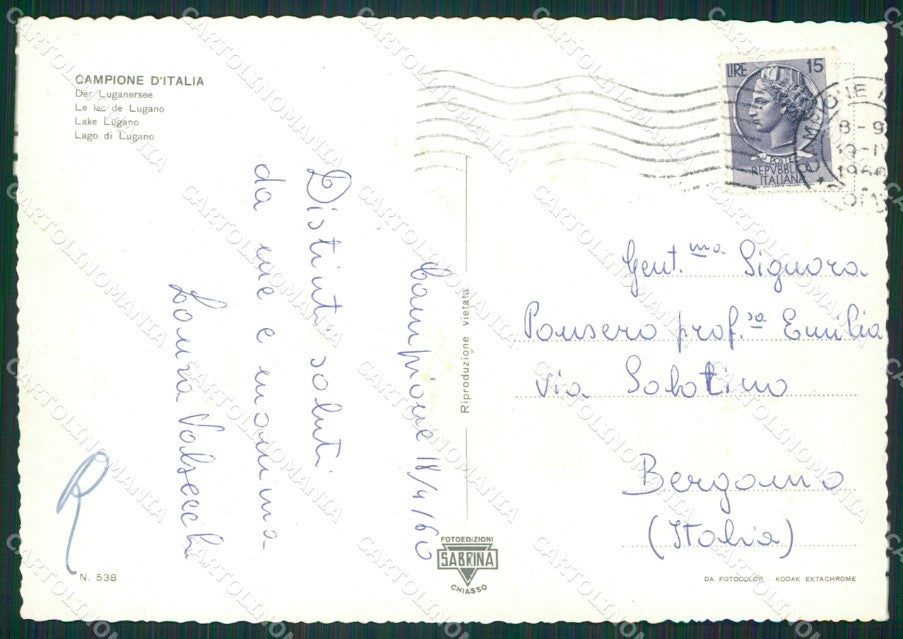 CAMPIONE D'ITALIA
Der Luganersee
Le lac de Lugano
Lake Lugano
Lago di Lugano
Campione 18/4/60
Distinti saluti
da me e mamma
Valsecchi
N. 538
Riproduzione vietata
FOTOEDIZIONI
SABRINA
CHIASSO
LIRE 15
POSTE
REPVBBLICA
ITALIANA
8-9
Gent.ma Signora
Ponsero prof.sa Emilia
Via Sabotino
Bergamo
(Italia)
DA FOTOCOLOR - KODAK EKTACHROME
CARTOLINOMANIA